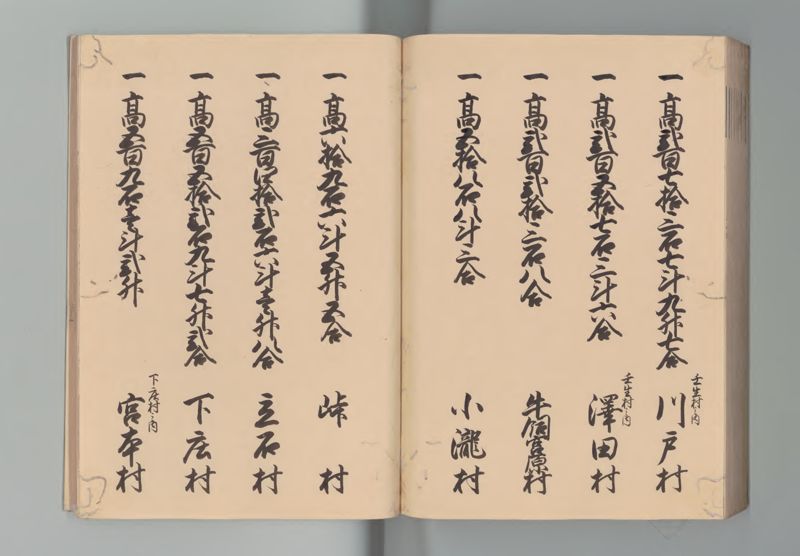 一 髙弐百七拾三石七斗九升七合 壬生村之内 川戸村
一 髙弐百五拾七石三斗六合 壬生村之内 澤田村
一 髙弐百弐拾三石八合 村
一 髙五拾八石八斗三合 小瀧村
一 髙六拾九石六斗五升五合 峠村
一 髙三百四拾弐石六斗壱升八合 立石村
一 髙五百五拾弐石九斗七升弐合 下庄村
一 髙五百九石壱斗弐升 下庄村之内 宮本村